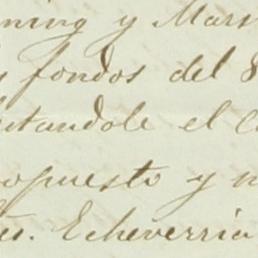 ning y Mars
fondos del S
tandole el C
opuesto y n
Echeverria